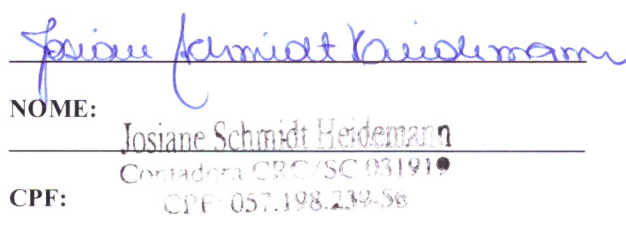 Josiane Schmidt Heidemann
NOME:
Josiane Schmidt Heidemann
Contadora CRC/SC 031919
CPF:
CPF 057.198.239-56